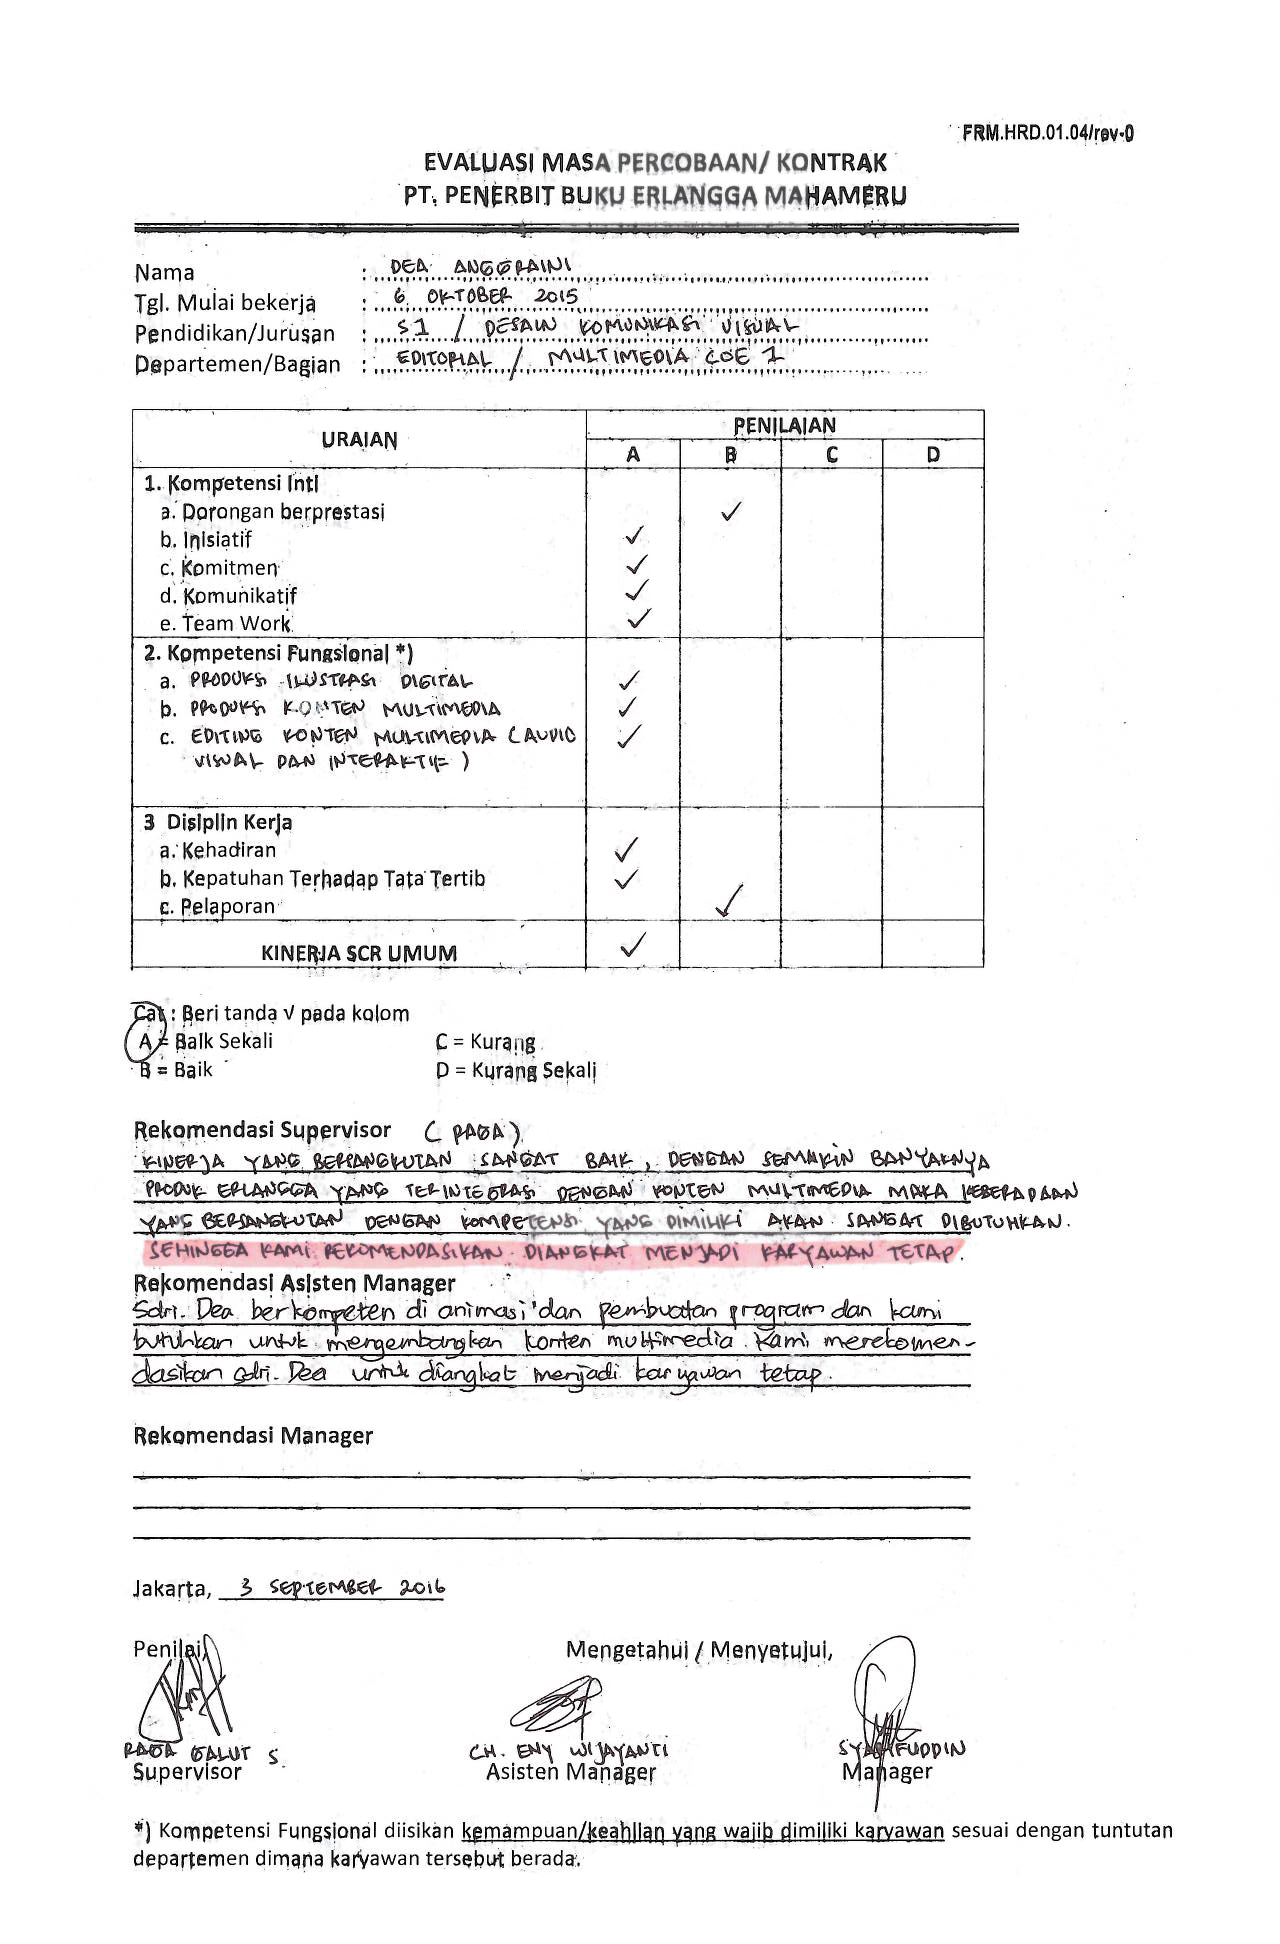 FRM.HRD.01.04/rev-0
EVALUASI MASA PERCOBAAN/ KONTRAK
PT. PENERBIT BUKU ERLANGGA MAHAMERU
Nama : DEA ANGGRAINI
Tgl. Mulai bekerja : 6 OKTOBER 2015
Pendidikan/Jurusan : S1 / DESAIN KOMUNIKASI VISUAL
Departemen/Bagian : EDITORIAL / MULTIMEDIA COE 1
URAIAN PENILAIAN
A B C D
1. Kompetensi Inti
a. Dorongan berprestasi ✓
b. Inisiatif ✓
c. Komitmen ✓
d. Komunikatif ✓
e. Team Work ✓
2. Kompetensi Fungsional *)
a. PRODUKSI ILUSTRASI DIGITAL ✓
b. PRODUKSI KONTEN MULTIMEDIA ✓
c. EDITING KONTEN MULTIMEDIA (AUDIO ✓
VISUAL DAN INTERAKTIF)
3 Disiplin Kerja
a. Kehadiran ✓
b. Kepatuhan Terhadap Tata Tertib ✓
c. Pelaporan ✓
KINERJA SCR UMUM ✓
Cat : Beri tanda √ pada kolom
A = Baik Sekali C = Kurang
B = Baik D = Kurang Sekali
Rekomendasi Supervisor (RAGA)
KINERJA YANG BERSANGKUTAN SANGAT BAIK, DENGAN SEMAKIN BANYAKNYA
PRODUK ERLANGGA YANG TERINTEGRASI DENGAN KONTEN MULTIMEDIA MAKA KEBERADAAN
YANG BERSANGKUTAN DENGAN KOMPETENSI YANG DIMILIKI AKAN SANGAT DIBUTUHKAN.
SEHINGGA KAMI REKOMENDASIKAN DIANGKAT MENJADI KARYAWAN TETAP.
Rekomendasi Asisten Manager
Sdri. Dea berkompeten di animasi dan pembuatan program dan kami
butuhkan untuk mengembangkan konten multimedia. Kami merekomen-
dasikan sdri. Dea untuk diangkat menjadi karyawan tetap.
Rekomendasi Manager
Jakarta, 3 SEPTEMBER 2016
Penilai, Mengetahui / Menyetujui,
RAGA GALUT S. CH. ENY WIJAYANTI SYARIFUDDIN
Supervisor Asisten Manager Manager
*) Kompetensi Fungsional diisikan kemampuan/keahlian yang wajib dimiliki karyawan sesuai dengan tuntutan
departemen dimana karyawan tersebut berada.